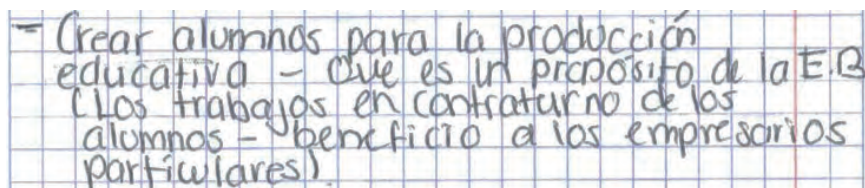 - Crear alumnos para la producción
educativa - Que es un propósito de la E.B
(Los trabajos en contraturno de los
alumnos - beneficio a los empresarios
particulares)